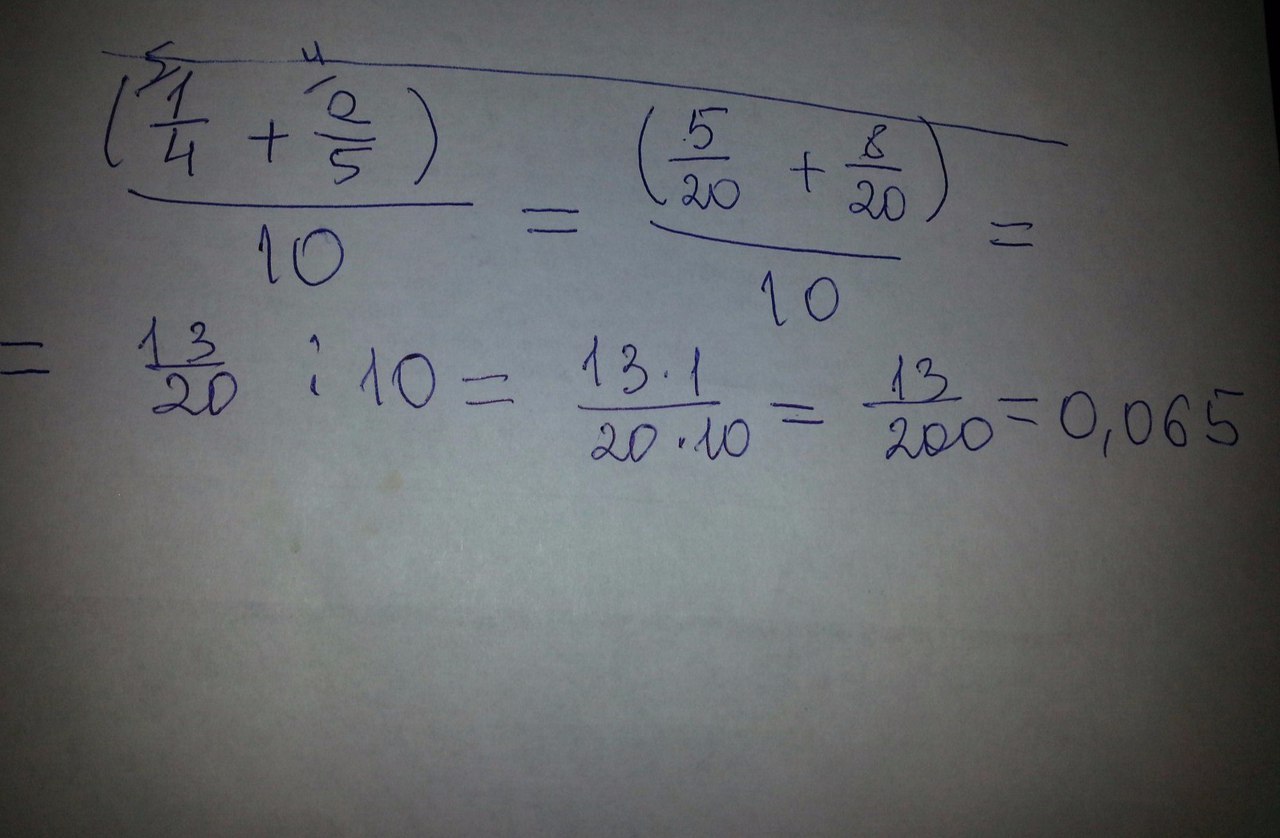 (⁵1/4 + ⁴2/5) / 10 = (5/20 + 8/20) / 10 =
= 13/20 : 10 = 13·1 / 20·10 = 13/200 = 0,065